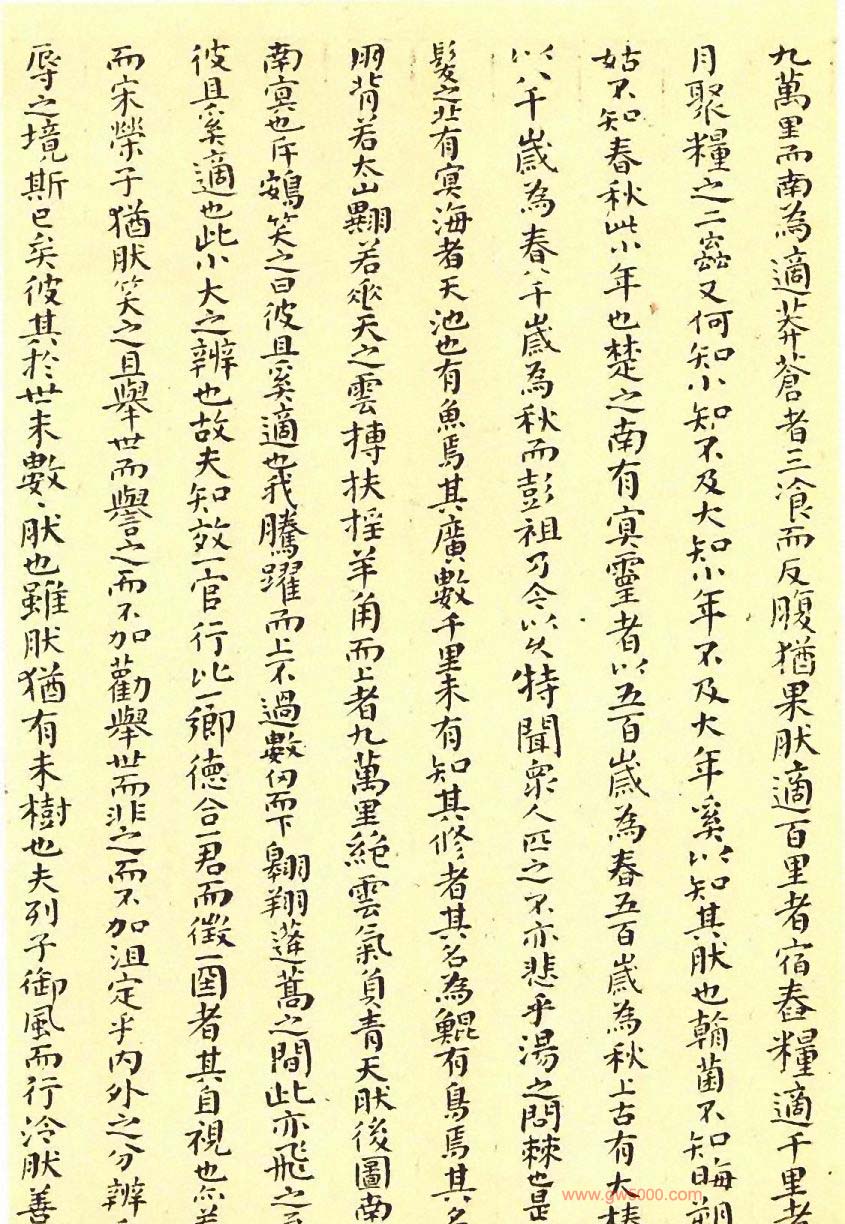 九萬里而南為適莽蒼者三飡而反腹猶果肰適百里者宿舂糧適千里者
月聚糧之二蟲又何知小知不及大知小年不及大年奚以知其肰也朝菌不知晦朔
姑不知春秋此小年也楚之南有冥靈者以五百歲為春五百歲為秋上古有大椿
以八千歲為春八千歲為秋而彭祖乃今以久特聞衆人匹之不亦悲乎湯之問棘也是
髮之北有冥海者天池也有魚焉其廣數千里未有知其修者其名為鯤有鳥焉其名
朋背若太山翼若垂天之雲摶扶摇羊角而上者九萬里絕雲氣負青天肰後圖南
南冥也斥鴳笑之曰彼且奚適也我騰躍而上不過數仞而下翱翔蓬蒿之間此亦飛之至
彼且奚適也此小大之辨也故夫知效一官行比一鄉德合一君而徵一國者其自視也亦若
而宋榮子猶肰笑之且舉世而譽之而不加勸舉世而非之而不加沮定乎內外之分辨乎
辱之境斯已矣彼其於世未數〻肰也雖肰猶有未樹也夫列子御風而行泠肰善